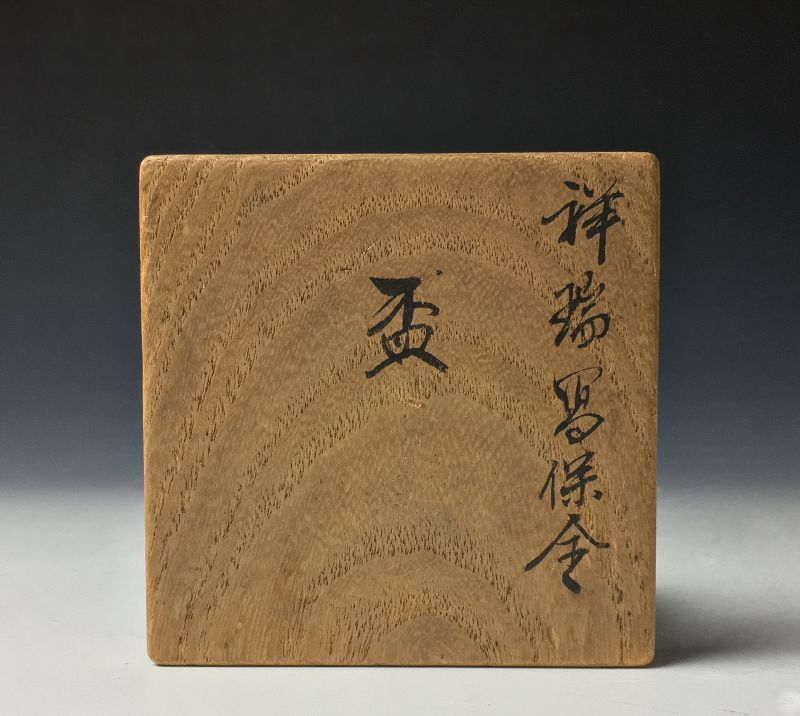 祥瑞写保全
盃